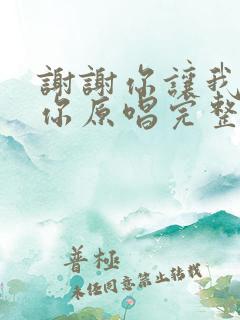 謝謝你讓我
你原唱完整
普極
未經同意禁止轉載